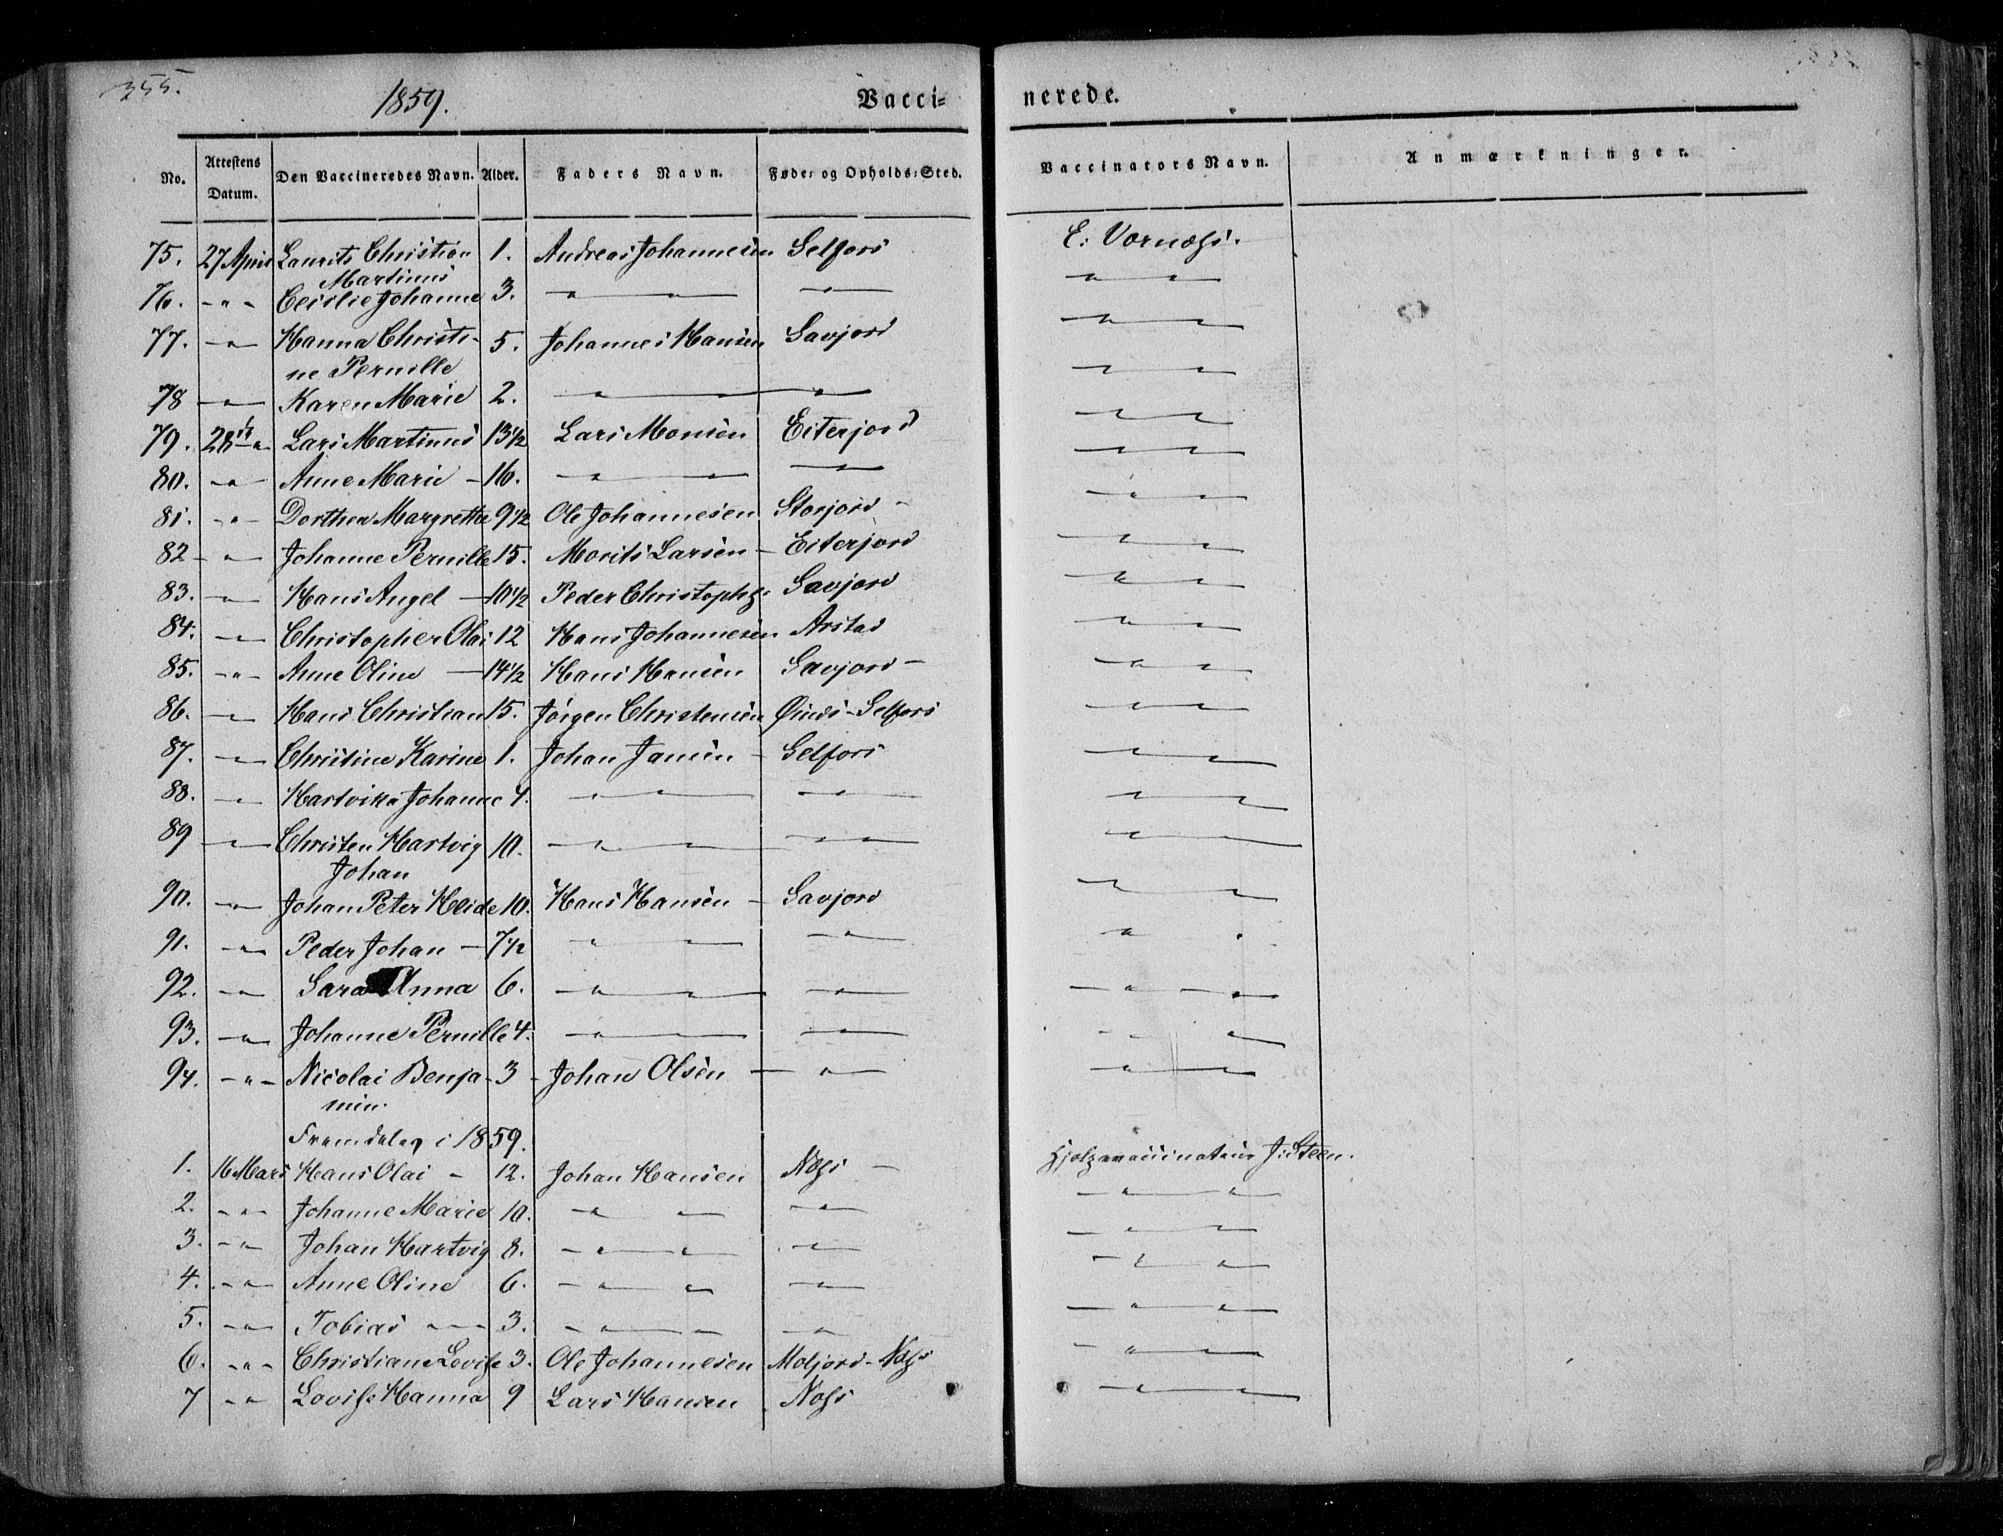 355.
1859.
Vacci- nerede.
No. Attestens Datum. Den Vaccineredes Navn. Alder. Faders Navn. Føde- og Opholds-Sted. Vaccinators Navn. Anmærkninger.
75. 27 April Laurits Christian 1. Andreas Johannesen Selfors E. Vornæss.
Martinus
76. -"- Cecilie Johanne 3. " " " " "
77. -"- Hanna Christi- 5. Johannes Hansen Savjord " "
ne Pernille
78 -"- Karen Marie 2. " " " "
79. 28 -"- Lars Martinus 13 1/2 Lars Monsen Eiterjord " "
80. -"- Anne Marie - 16. " " " " "
81. -"- Dorthea Margrethe 9 1/2 Ole Johannesen Storjord - " "
82 -"- Johanne Pernille 15. Morits Larsen - Eiterjord " "
83. -"- Hans Angel - 10 1/2 Peder Christophs. Savjord " "
84. -"- Christopher Olai 12 Hans Johannesen Arstad " "
85. -"- Anne Oline - 14 1/2 Hans Hansen Savjord - " "
86. -"- Hans Christian 15. Jørgen Christensen Øinds-Selfors " "
87. -"- Christine Karine 1. Johan Jansen - Selfors " "
88. -"- Hartvikka Johanne 4. " " " " "
89 -"- Christen Hartvig 10. " " " " " "
Johan
90. -"- Johan Peter Heide 10. Hans Hansen - Savjord " "
91. -"- Peder Johan - 7 1/2 " " " " "
92. -"- Sara Anna 6. " " " " "
93. -"- Johanne Pernille 4. " " " " "
94. -"- Nicolai Benja- 3 - Johan Olsen - " - " "
min.
Fremdeles i 1859.
1. 16 Mars Hans Olai - 12. Johan Hansen Næss - Hjelpevaccinateur J. Steen.
2. -"- Johanne Marie 10. " " " " "
3. -"- Johan Hartvig 8. " " " " "
4. -"- Anne Oline 6. " " " " "
5. -"- Tobias - 3. " " " " "
6. -"- Christiane Lovise 3. Ole Johannesen Moljord-Næss " "
7 -"- Lovise Hanna 9 Lars Hansen Næss " "